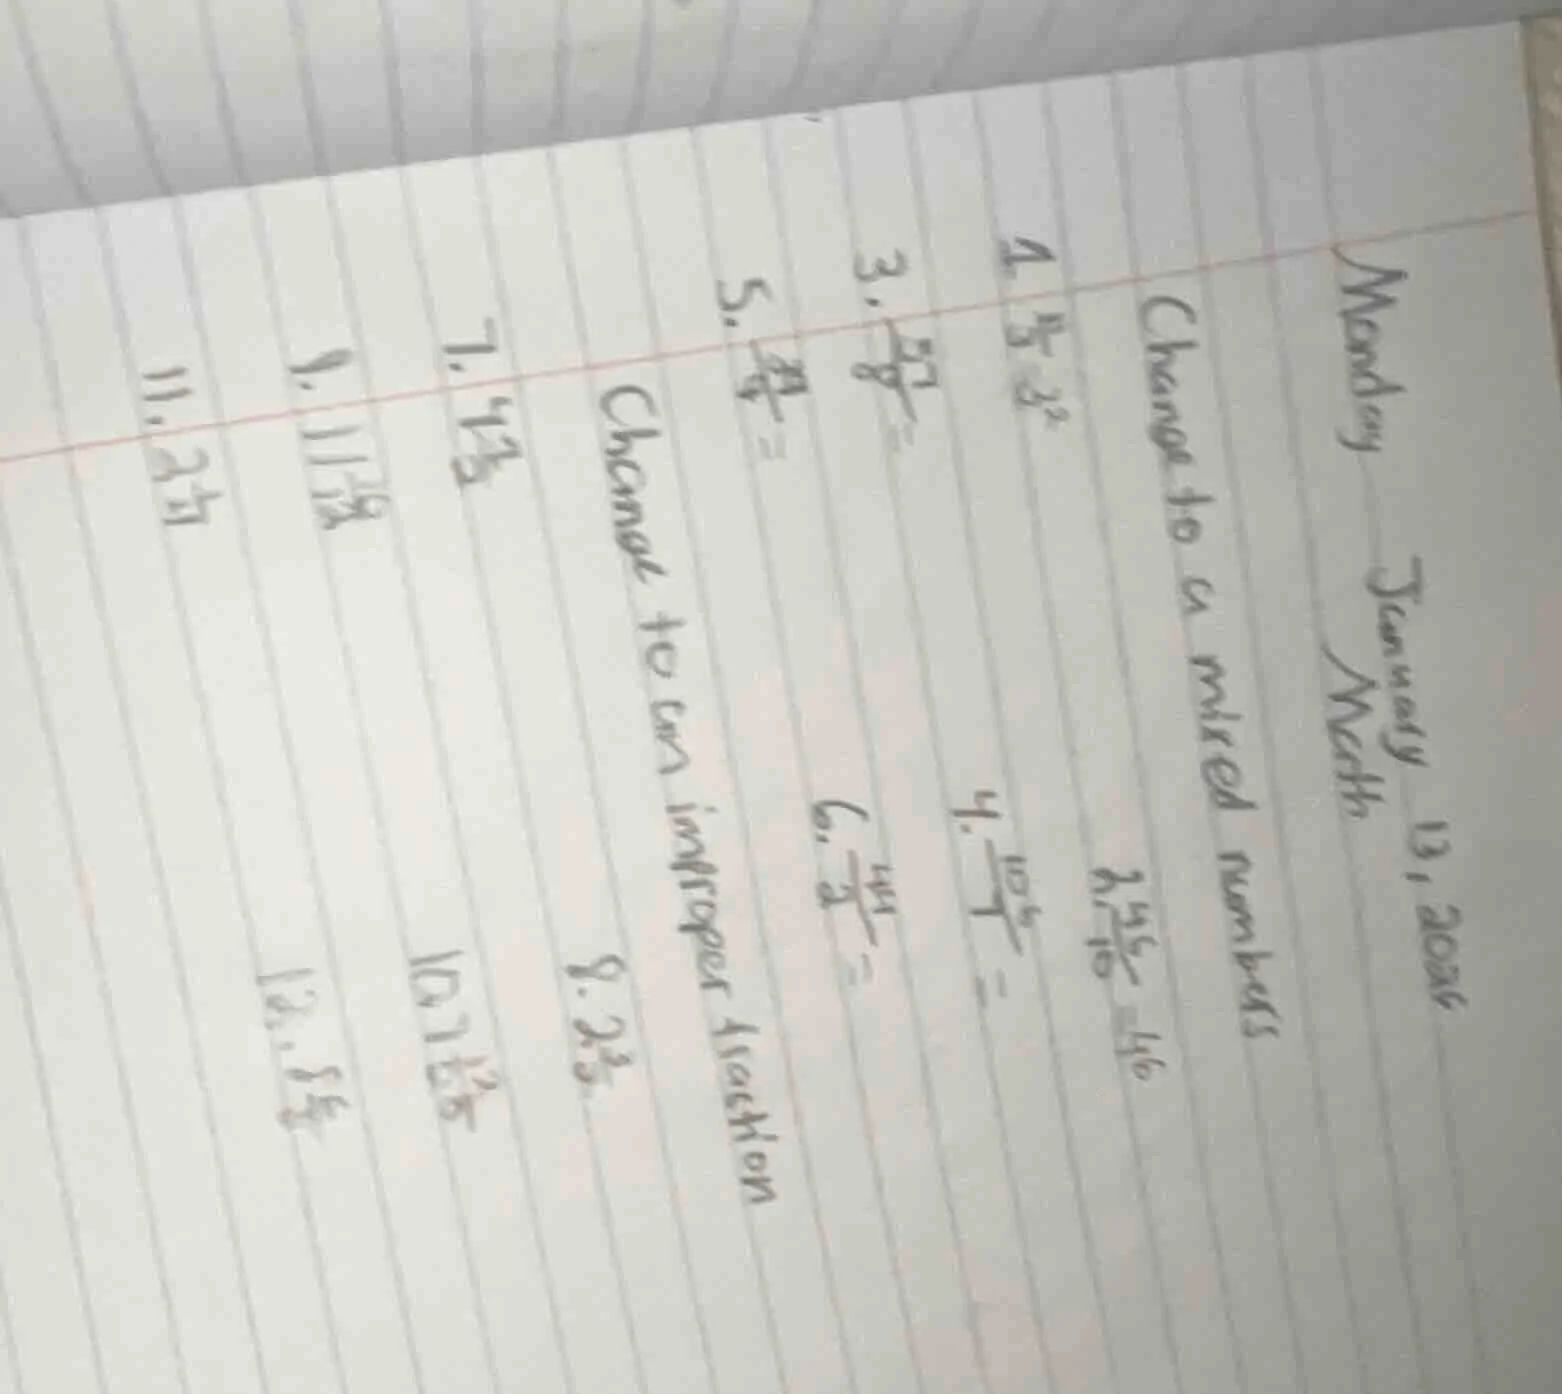 Monday January 13, 2026
Math
Change to a mixed numbers
1. 2. 46/10 = 46
3. 57/8 = 4. 106/7 =
5. 6. 44/2 =
Change to an improper fraction
7. 4 2/3 8. 2 3/5
9. 11 10/12 10. 7 12/15
11. 2 1/4 12.